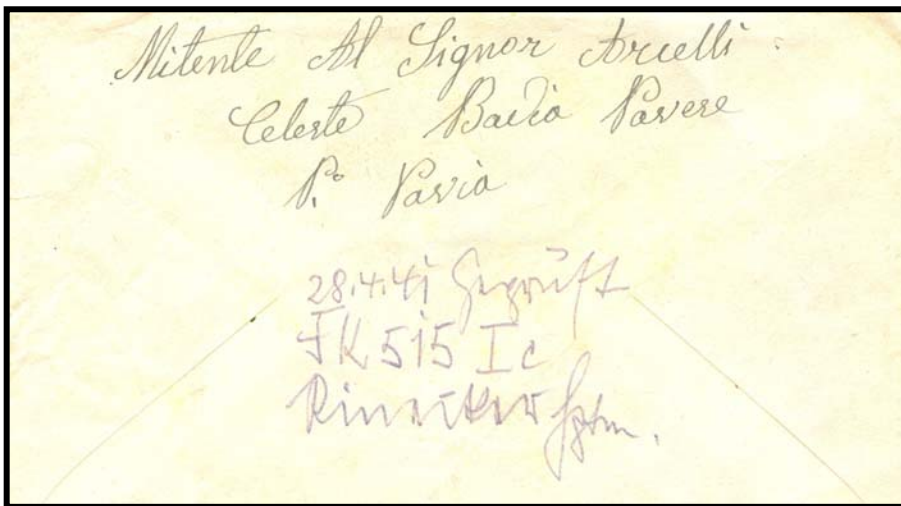 Mitente Al Signor Arcelli
Celeste Badia Pavese
P.ᵒ Pavia
28.4.41 Geprüft
FK 515 Ic
Hptm.